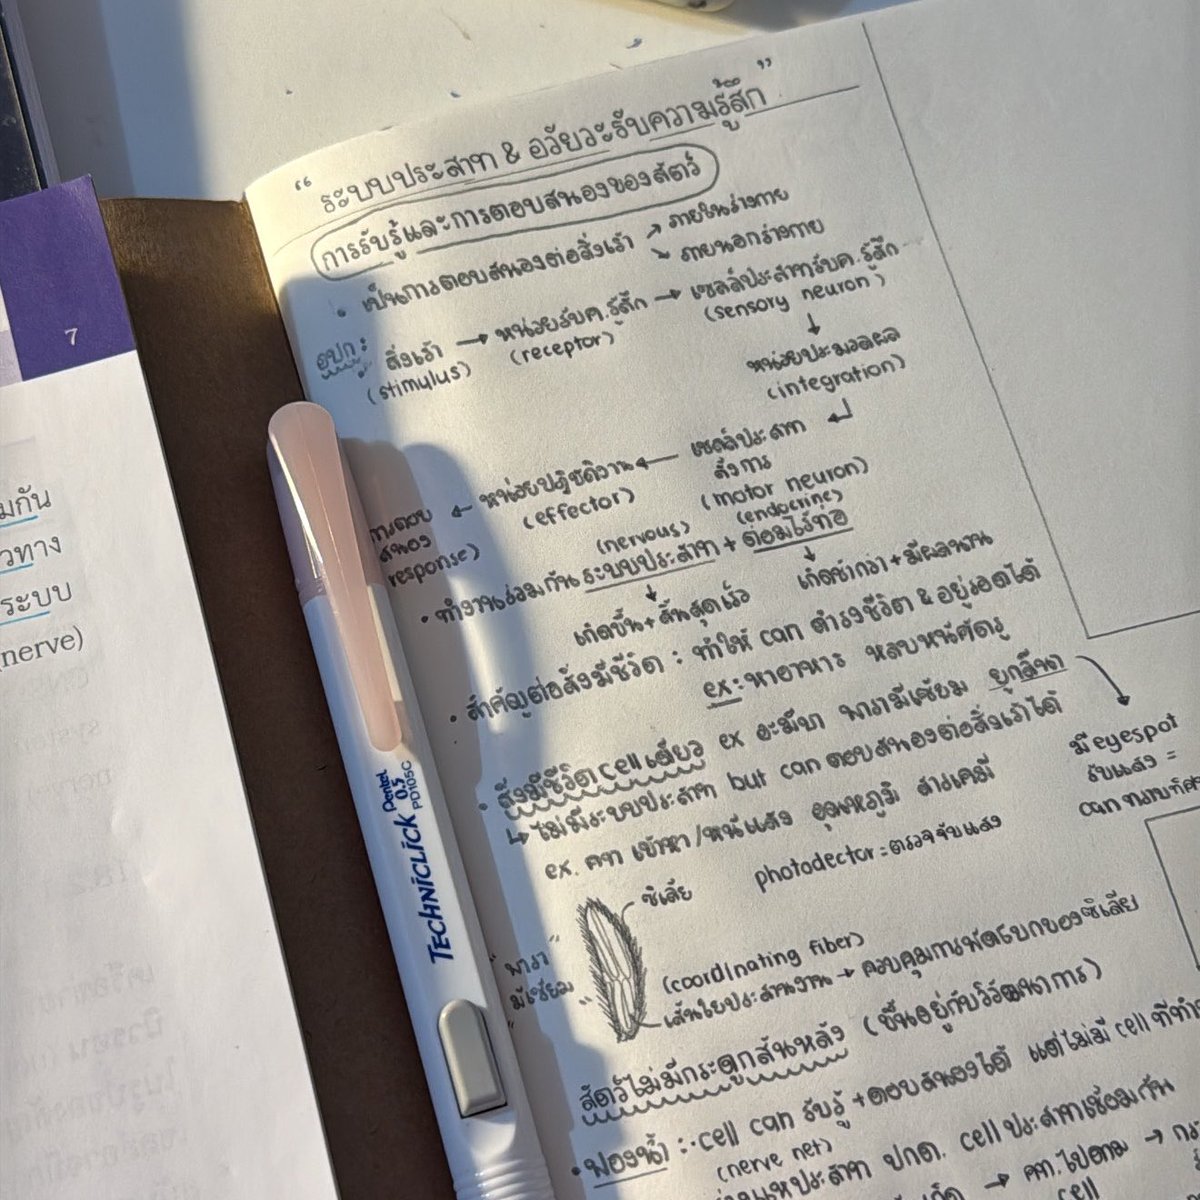 7
มกัน
วทาง
ระบบ
nerve)
TECHNICLICK Pentel 0.5 PD105C
“ระบบประสาท & อวัยวะรับความรู้สึก”
การรับรู้และการตอบสนองของสัตว์
• เป็นการตอบสนองต่อสิ่งเร้า ↗ ภายในร่างกาย
↘ ภายนอกร่างกาย
อุปก: สิ่งเร้า → หน่วยรับค.รู้สึก → เซลล์ประสาทรับค.รู้สึก
(stimulus) (receptor) (sensory neuron)
↓
หน่วยประมวลผล
(integration)
↵
การตอบสนอง ← หน่วยปฏิบัติงาน ← เซลล์ประสาทสั่งการ
response) (effector) (motor neuron)
(nervous) (endocrine)
• ทำงานร่วมกัน ระบบประสาท + ต่อมไร้ท่อ
↓ ↓
เกิดขึ้น + สิ้นสุดเร็ว เกิดช้ากว่า + มีผลนาน
• สำคัญต่อสิ่งมีชีวิต : ทำให้ can ดำรงชีวิต & อยู่รอดได้
ex: หาอาหาร หลบหนีศัตรู
• สิ่งมีชีวิต cell เดียว ex อะมีบา พารามีเซียม ยูกลีนา
↳ ไม่มีระบบประสาท but can ตอบสนองต่อสิ่งเร้าได้
มี eyespot
รับแสง =
can ทราบทิศ
ex. คท เข้าหา/หนีแสง อุณหภูมิ สารเคมี
photodector = ตรวจจับแสง
ซิเลีย
“พารามีเซียม”
(coordinating fiber)
เส้นใยประสานงาน → ควบคุมการพัดโบกของซิเลีย
สัตว์ไม่มีกระดูกสันหลัง (ขึ้นอยู่กับวิวัฒนาการ)
• ฟองน้ำ : cell can รับรู้ + ตอบสนองได้ แต่ไม่มี cell ที่ทำ
(nerve net)
ร่างแหประสาท ปกด. cell ประสาทเชื่อมกัน
→ คท.ไปตาม →
cell